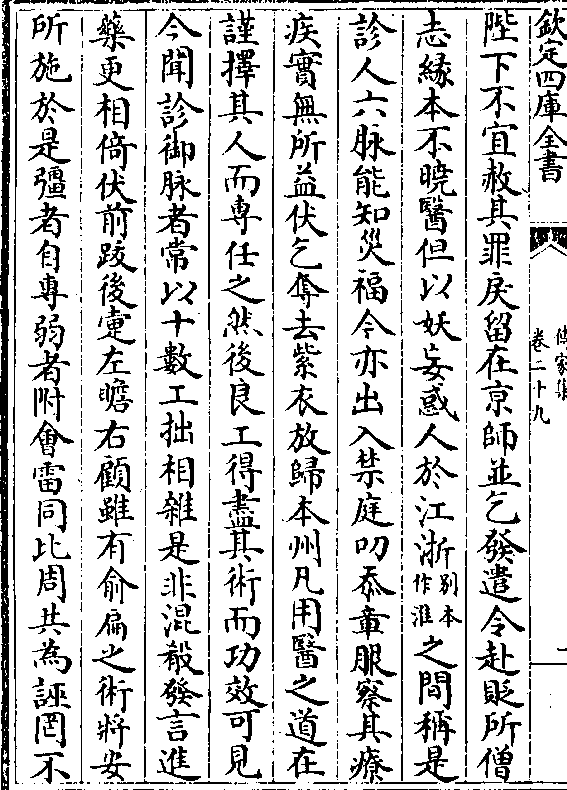 欽定四庫全書
傳家集
卷二十九
陛下不宜赦其罪戾留在京師並乞發遣令赴貶所僧
志緣本不曉醫但以妖妄惑人於江浙別本作淮之間稱是
診人六脉能知災福今亦出入禁庭叨忝章服察其療
疾實無所益伏乞奪去紫衣放歸本州凡用醫之道在
謹擇其人而專任之然後良工得盡其術而功效可見
今聞診御脉者常以十數工拙相雜是非混殽發言進
藥更相倚伏前跋後疐左瞻右顧雖有俞扁之術將安
所施於是彊者自專弱者附會雷同比周共為誣罔不